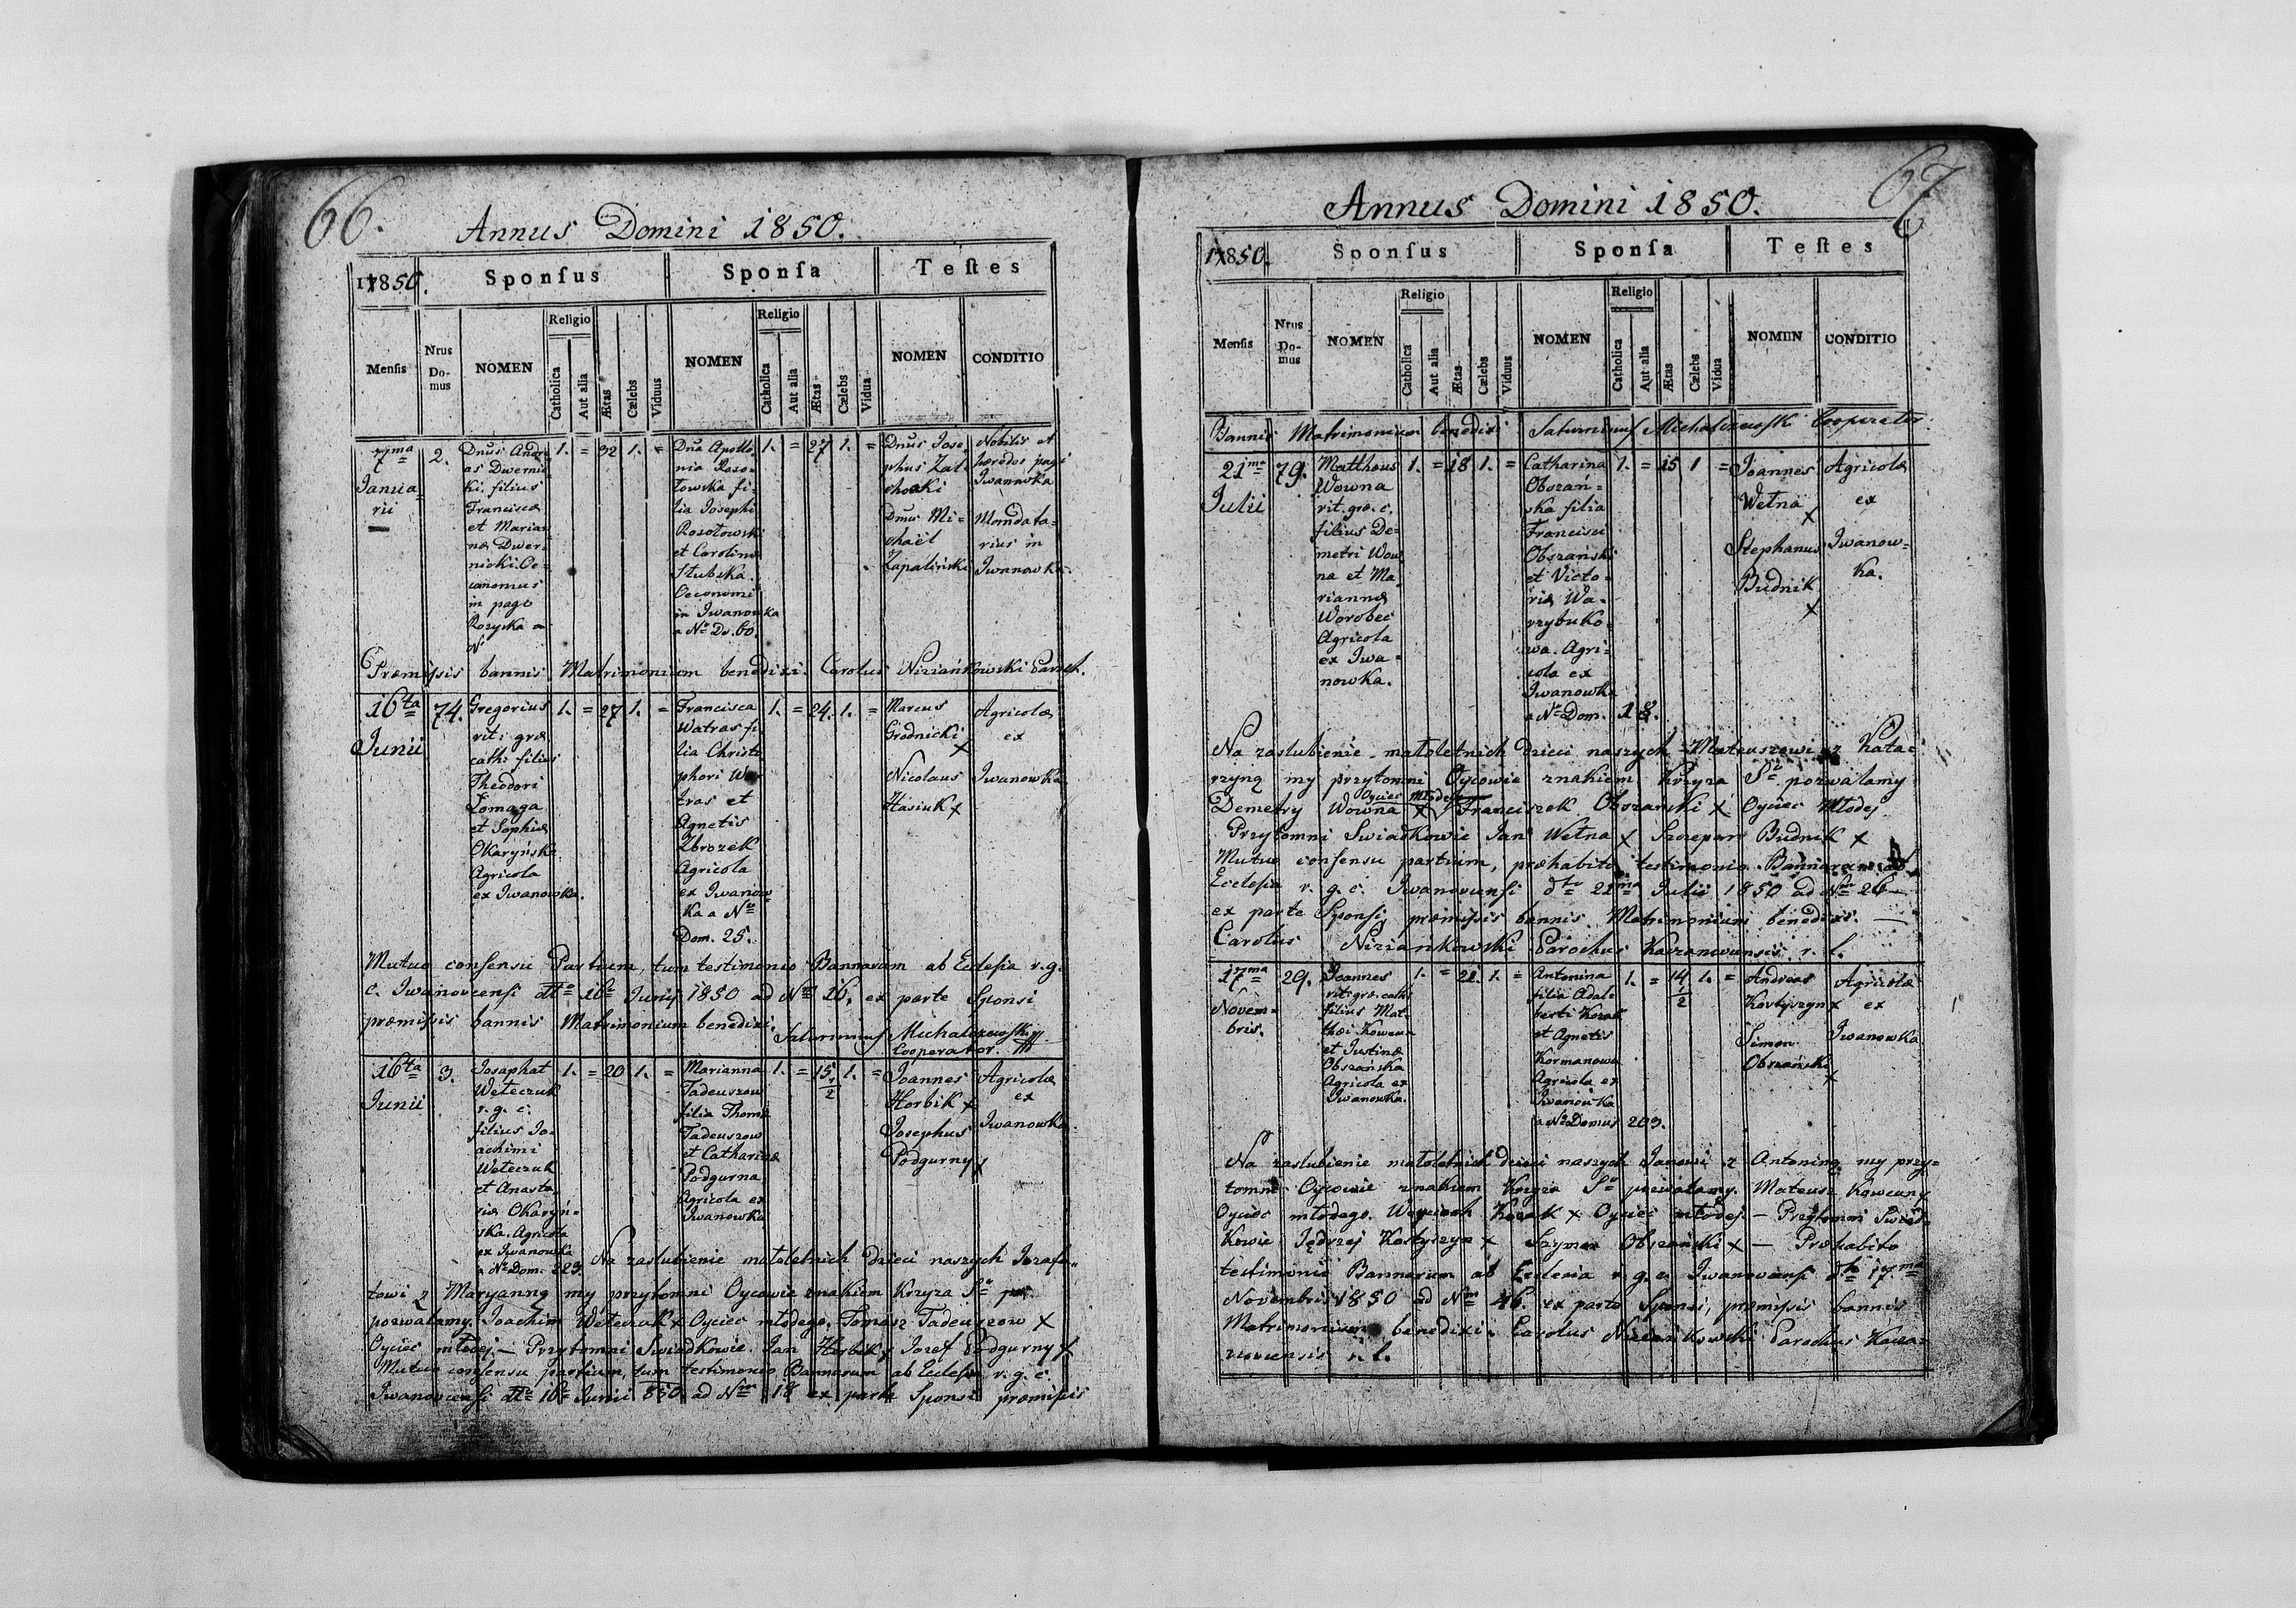 66.
Annus Domini 1850.
1850.
Sponſus
Sponſa
Teſtes
Menſis
Nrus Domus
NOMEN
Religio
Catholica
Aut alia
Ætas
Cælebs
Viduus
NOMEN
Religio
Catholica
Aut alia
Ætas
Cælebs
Vidua
NOMEN
CONDITIO
7ma
Janua-
rii
2.
Dnus Andre-
as Dwernic-
ki filius
Francisci
et Marian-
næ Dwer-
nicki Oe-
conomus
in pago
Rozyska a
N
1. = 32 1. =
Dna Apollo-
nia Roso-
towska fi-
lia Josephi
Rosotowski
et Carolina
Słubska
Oeconomi
in Iwanowka
a Nro Do. 60.
1. = 27 1. =
Dnus Jose-
phus Zal-
choaki
Dnus Mi-
chaël
Zapaliński
Nobilis et
hæredos pagi
Iwanowka
Mandata-
rius in
Iwanowka
Præmissis bannis Matrimonium benedixi. Carolus Niziańkowski Paroch.
16ta
Junii
74.
Gregorius
rit: græ
cath: filius
Theodori
Łomaga
et Sophiæ
Okaryńska
Agricola
ex Iwanowka.
1. = 27 1. =
Francisca
Watras fi-
lia Christo-
phori Wa-
tras et
Agnetis
Zbrozek
Agricola
ex Iwanow-
ka a Nro
Dom. 25.
1. = 24. 1. =
Marcus
Grodnicki
x
Nicolaus
Hasiuk x
Agricolæ
ex
Iwanowka
Mutuo consensu Partium, tum testimonio Bannorum ab Ecclesia r. g.
c. Iwanovcensi dto 16a Junij 1850 ad Nrm 16. ex parte Sponsi
præmissis bannis Matrimonium benedixi.
Saturninus Michalczewski
Cooperator.
16ta
Junii
3.
Josaphat
Weteczuk
r. g. c.
filius Jo-
achimi
Weteczuk
et Anasta-
siæ Okaryń-
ska. Agricola
ex Iwanowka
a Nro Dom. 223.
1. = 20 1. =
Marianna
Tadeuszow
filia Thomæ
Tadeuszow
et Catharinæ
Podgurna
Agricola ex
Iwanowka
1. = 15 1/2 1. =
Joannes
Horbik x
Josephus
Podgurny x
Agricolæ
ex
Iwanowka
Na zaslubienie małoletnich dzieci naszych Jozafa-
towi z Maryanną my przytomni Oycowie znakiem Krzyza So
pozwalamy. Joachim Weteczuk x Oyciec młodego. Tomasz Tadeuszow x
Oyciec młodej. – Przytomni Swiadkowie. Jan Horbik x Jozef Podgurny x
Mutuo consensu partium, tum testimonio Bannorum ab Ecclesia r. g. c.
Iwanovcensi dto 16a Junii 850 ad Nrm 18 ex parte Sponsi præmissis
67
Annus Domini 1850.
1850.
Sponſus
Sponſa
Teſtes
Menſis
Nrus Domus
NOMEN
Religio
Catholica
Aut alia
Ætas
Cælebs
Viduus
NOMEN
Religio
Catholica
Aut alia
Ætas
Cælebs
Vidua
NOMEN
CONDITIO
Bannis Matrimonium benedixi Saturninus Michalczewski Cooperator.
21ma
Julii
79.
Mattheus
Wowna
rit. græ. c.
filius De-
metri Wow-
na et Ma-
riannæ
Worobec
Agricola
ex Iwa-
nowka.
1. = 18 1. =
Catharina
Obszań-
ska filia
Francisci
Obszański
et Victo-
riæ Wa-
rzybuko-
wa. Agri-
cola ex
Iwanowka
a Nro Dom. 18.
1. = 15 1 =
Joannes
Wetna
x
Stephanus
Budnik
x
Agricolæ
ex
Iwanow-
ka.
Na zaslubienie małoletnich dzieci naszych Mateuszowi z Kata-
rzyną my przytomni Oycowie znakiem Krzyza So pozwalamy
Demetry Wowna x Oyciec młodego Franciszek Obszanski x Oyciec Młodej
Przytomni Swiadkowie Jan Wetna x Szczepan Budnik x
Mutuo consensu partium, præhabito testimonio Bannorum ab
Ecclesia r. g. c. Iwanovcensi dto 21ma Julii 1850 ad Nrm 26 –
ex parte Sponsi, præmissis bannis Matrimonium benedixi. –
Carolus Niziańkowski Parochus Kaczanovcensis r. l.
17ma
Novem-
bris.
29.
Joannes
rit: græ. cath:
filius Mat-
thæi Kowcun
et Justinæ
Obszańska
Agricola ex
Iwanowka.
1. = 22. 1. =
Antonina
filia Adal-
berti Kozak
et Agnetis
Kormanowa
Agricola ex
Iwanowka
a Nro Domus 203.
1. = 14 1/2 1. =
Andreas
Kostyszyn x
Simon
Obszański
x
Agricolæ
ex
Iwanowka
Na zaslubienie małoletnich dzieci naszych Janowi z Antoniną my przy-
tomni Oycowie znakiem Krzyza So pozwalamy. Mateusz Kowcuny
Oyciec młodego. Woyciech Kozak x Oyciec młodej. – Przytomni Swiad-
kowie Jędrzej Kostyszyn x Szymon Obszański x – Præhabito
testimonio Bannorum ab Ecclesia r. g. c. Iwanovcensi dto 17ma
Novembris 1850 ad Nrm 46. ex parte Sponsi, præmissis bannis
Matrimonium benedixi. Carolus Niziańkowski Parochus Kacza-
novcensis r. l.